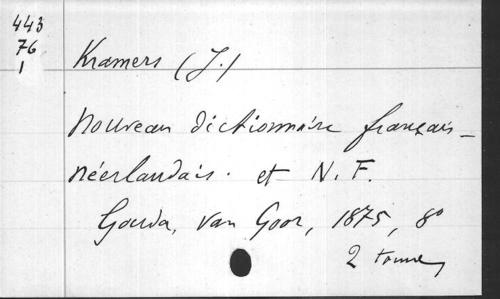 443
76
1
Kramers (J.)
Nouveau dictionnaire français-
néerlandais. et N. F.
Gouda, van Goor, 1875, 8º
2 tomes